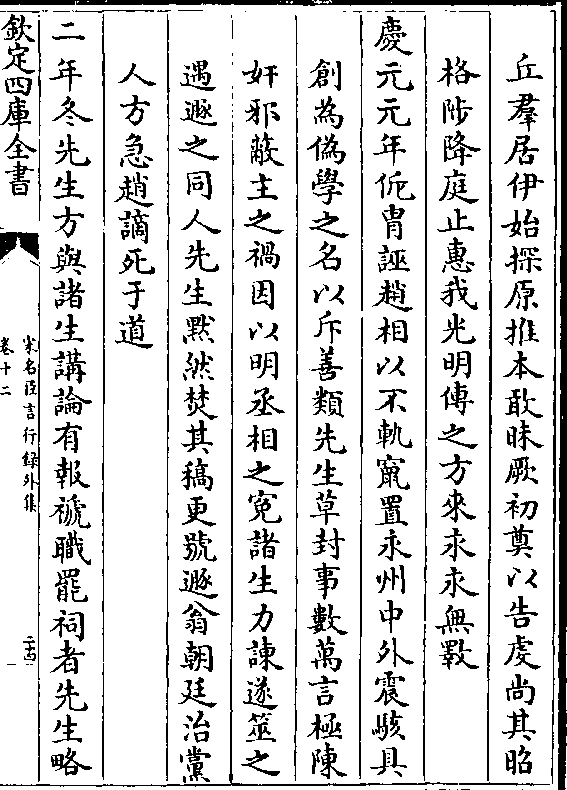 丘羣居伊始探原推本敢昧厥初奠以告虔尚其昭
格陟降庭止惠我光明傳之方來永永無斁
慶元元年侂胄誣趙相以不軌竄置永州中外震駭具
創為偽學之名以斥善類先生草封事數萬言極陳
奸邪蔽主之禍因以明丞相之寃諸生力諫遂筮之
遇遯之同人先生黙然焚其稿更號遯翁朝廷治黨
人方急趙謫死于道
二年冬先生方與諸生講論有報褫職罷祠者先生略
欽定四庫全書
宋名臣言行録外集
卷十二
二十四